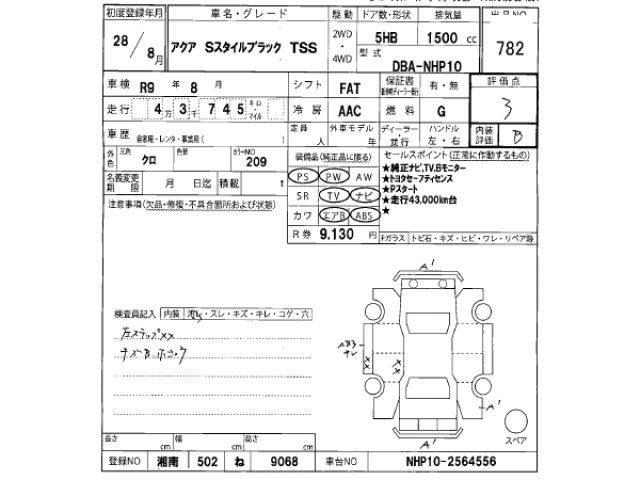 初度登録年月 車名・グレード 駆動 ドア数・形状 排気量 出品NO
28 / 8月 アクア Sスタイルブラック TSS 2WD・4WD 5HB 1500 cc 782
型式 DBA-NHP10
車検 R9 年 8 月 シフト FAT 保証書 有・無 評価点
走行 4万3千745 キロ・マイル 冷房 AAC 燃料 G 3
車歴 自家用・レンタ・事業用( ) 定員 人 外車モデル 年 ディーラー・並行 ハンドル 左・右 内装評価 B
外色 元色 クロ 色替 カラーNO 209
装備品(純正品に限る) セールスポイント(正常に作動するもの)
名義変更期限 月 日迄 積載 t
PS PW AW
★純正ナビ,TV,Bモニター
★トヨタセーフティセンス
SR TV ナビ
★Pスタート
★走行43,000km台
カワ エアB ABS
★
注意事項(欠品・修復・不具合箇所および状態)
R券 9,130 円
Fガラス トビ石・キズ・ヒビ・ワレ・リペア跡
A'
検査員記入 内装 汚レ・スレ・キズ・キレ・コゲ・穴
左ステップ××
××
××
A'
A'
スペア
長さ cm 幅 cm 高さ cm
登録NO 湘南 502 ね 9068 車台NO NHP10-2564556